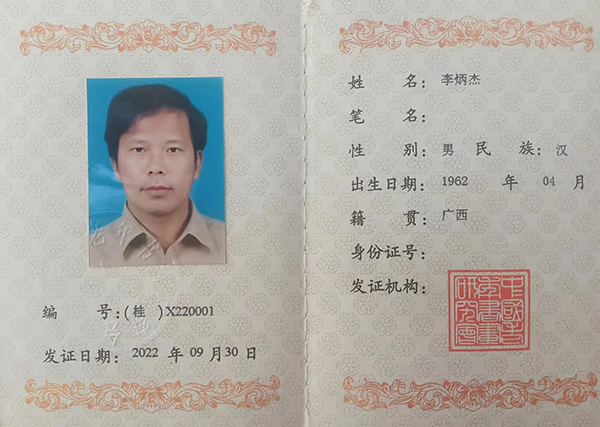 编 号:(桂 )X220001
发证日期: 2022 年 09 月30 日
姓 名: 李炳杰
笔 名:
性 别: 男 民 族: 汉
出生日期: 1962 年 04 月
籍 贯: 广西
身份证号:
发证机构: